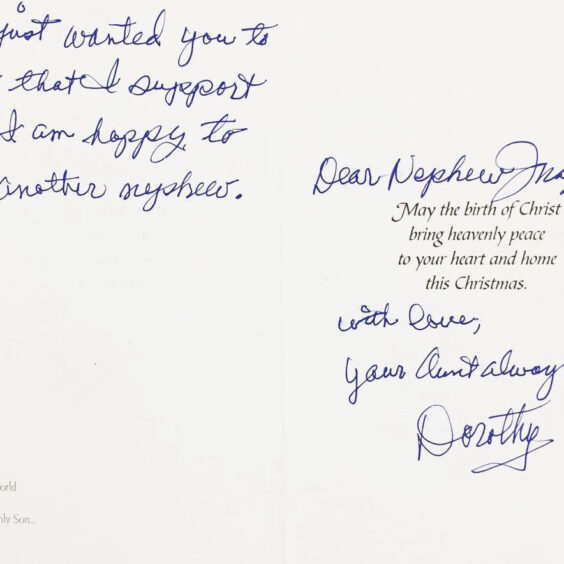 just wanted you to
that I support
I am happy to
another nephew.
orld
nly Son...
Dear Nephew
May the birth of Christ
bring heavenly peace
to your heart and home
this Christmas.
with love,
your Aunt alway
Dorothy